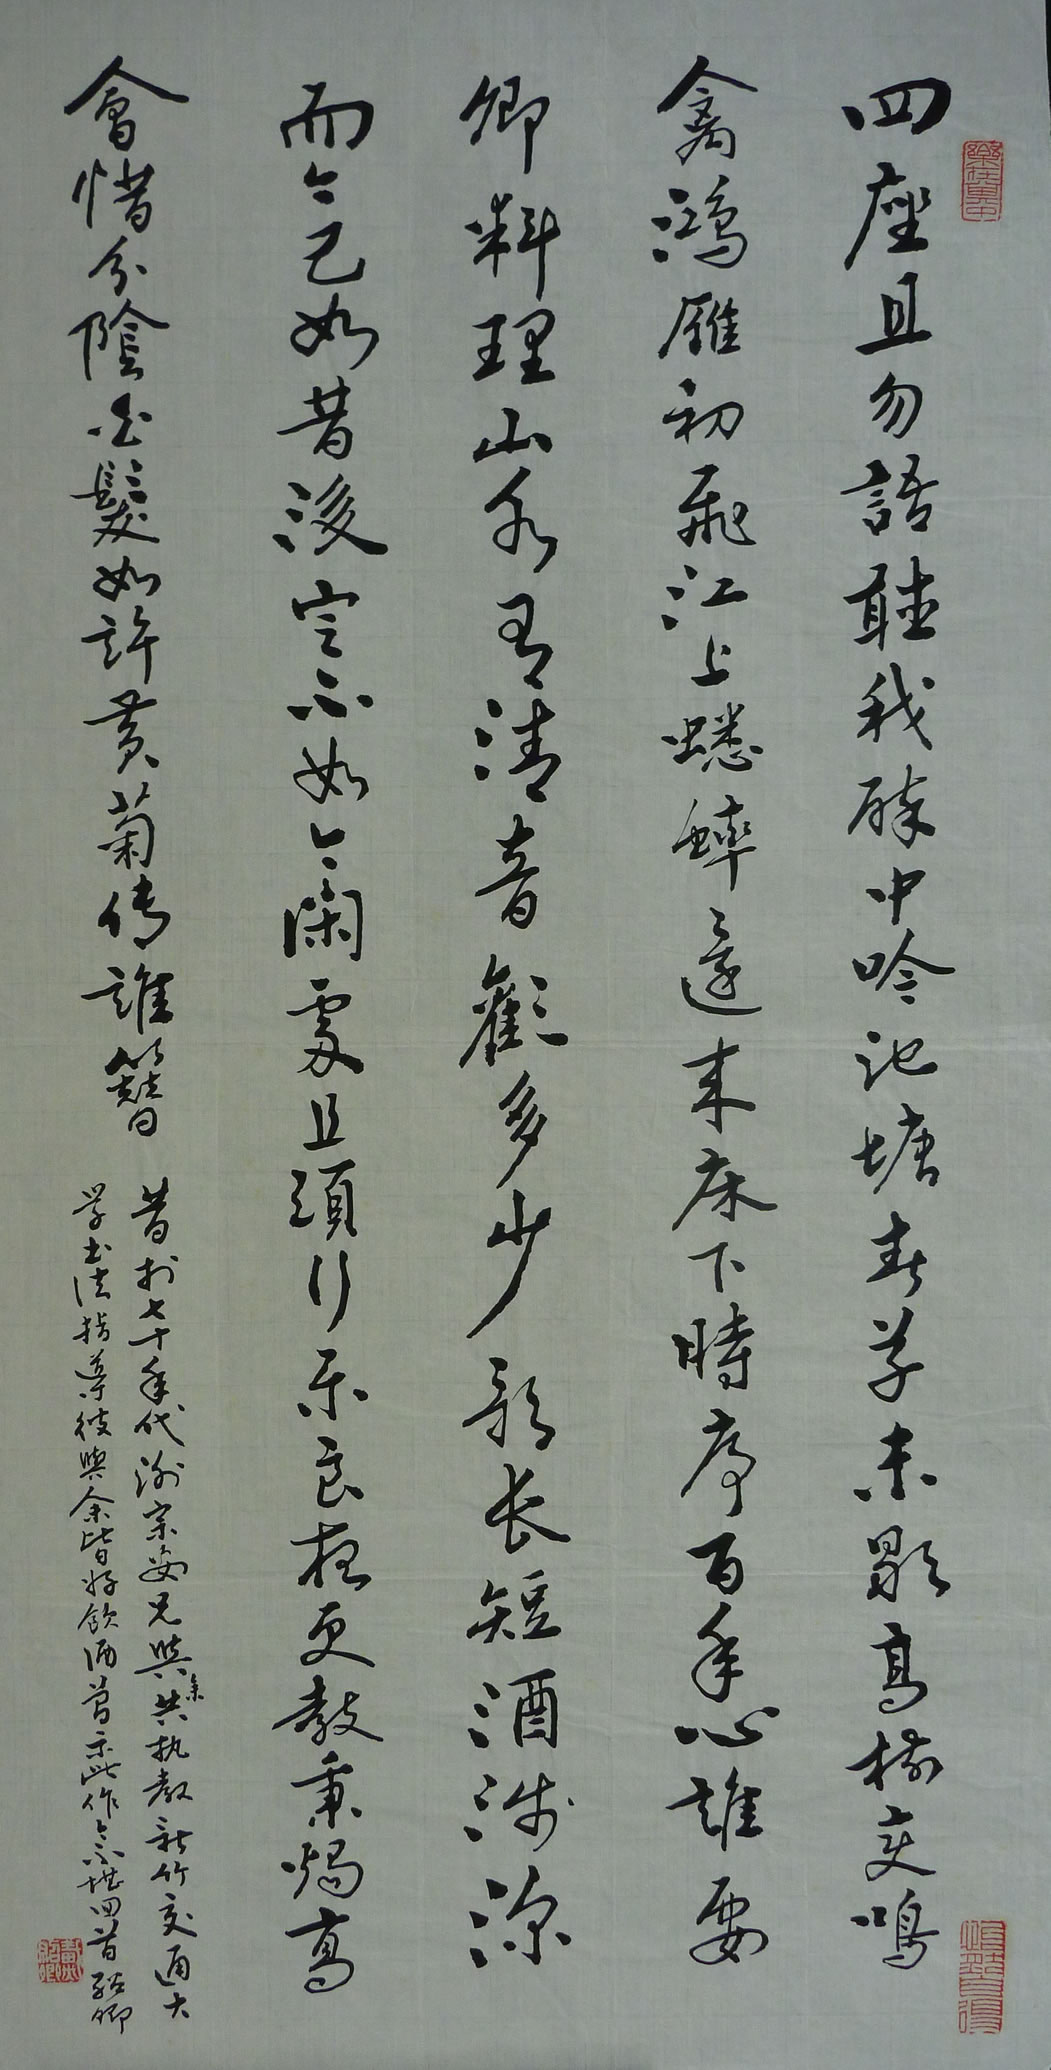 四座且勿語聽我醉中吟池塘春草未歇高樹变鳴
禽鴻雁初飛江上蟋蟀還来床下時序百年心誰要
卿料理山水有清音歡多少歌长短酒浅深
而今已如昔後定不如今闲處且須行乐良夜更教秉燭高
會惜分陰白髮如許黄菊傅誰簪
昔於七十年代謝宗安兄與余共执教新竹交通大
学书法指導彼與余皆好飲酒嘗示此作今不堪回首紹卿